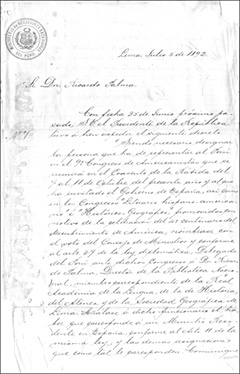 Lima, Julio 5 de 1892.
Sr. Don Ricardo Palma.
Con fecha 25 de Junio próximo
pasado, S. E. el Presidente de la República
ha expedido el siguiente decreto
"Siendo necesario designar
la persona que ha de representar al Perú
en el 9º Congreso de Americanistas que se
reunirá en el Convento de la Rábida del
7 al 11 de Octubre del presente año y al que
ha invitado el Gobierno de España, así como
en los Congresos Literario hispano-americano
e Histórico Geográfico, promovidos con
motivo de la celebración del 4º centenario del
descubrimiento de América, nómbrase, con
el voto del Consejo de Ministros y conforme
al artº 9 de la ley diplomática, Delegado
del Perú ante dichos Congresos a D. Ricar-
do Palma, Director de la Biblioteca Nacio-
nal, miembro correspondiente de la Real
Academia de la Lengua, de la de Historia,
del Ateneo y de la Sociedad Geográfica de
Lima. Señálase a dicho funcionario el ha-
ber que corresponde a un Ministro Resi-
dente en España, conforme al artº 11 de la
misma ley, y las demás asignaciones
que como tal le corresponden. Comuníque